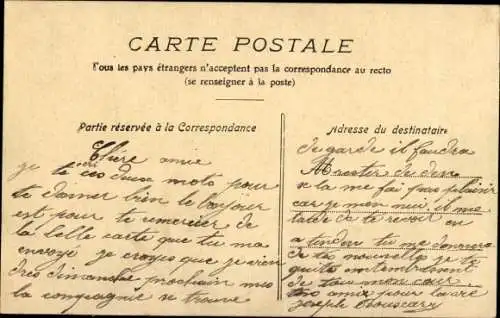 CARTE POSTALE
Tous les pays étrangers n'acceptent pas la correspondance au recto
(se renseigner à la poste)
Partie réservée à la Correspondance
Chère amie
je te deux moto pour
te donner bien le bonjour
est pour te remercier de
la belle carte que tu ma
envoyé je croyes que je vien
dres dimanche prochain mes
la compagnie se trouve
Adresse du destinataire
de garde il faudra
rester de
se la me fai pas plaisir
car je mon nui il me
tarde de te revoir en
atenden tu me donnera
de tes nouvelles je te
quite en tembrasent
de tous mon cœur
ton amie pour la vie
joseph